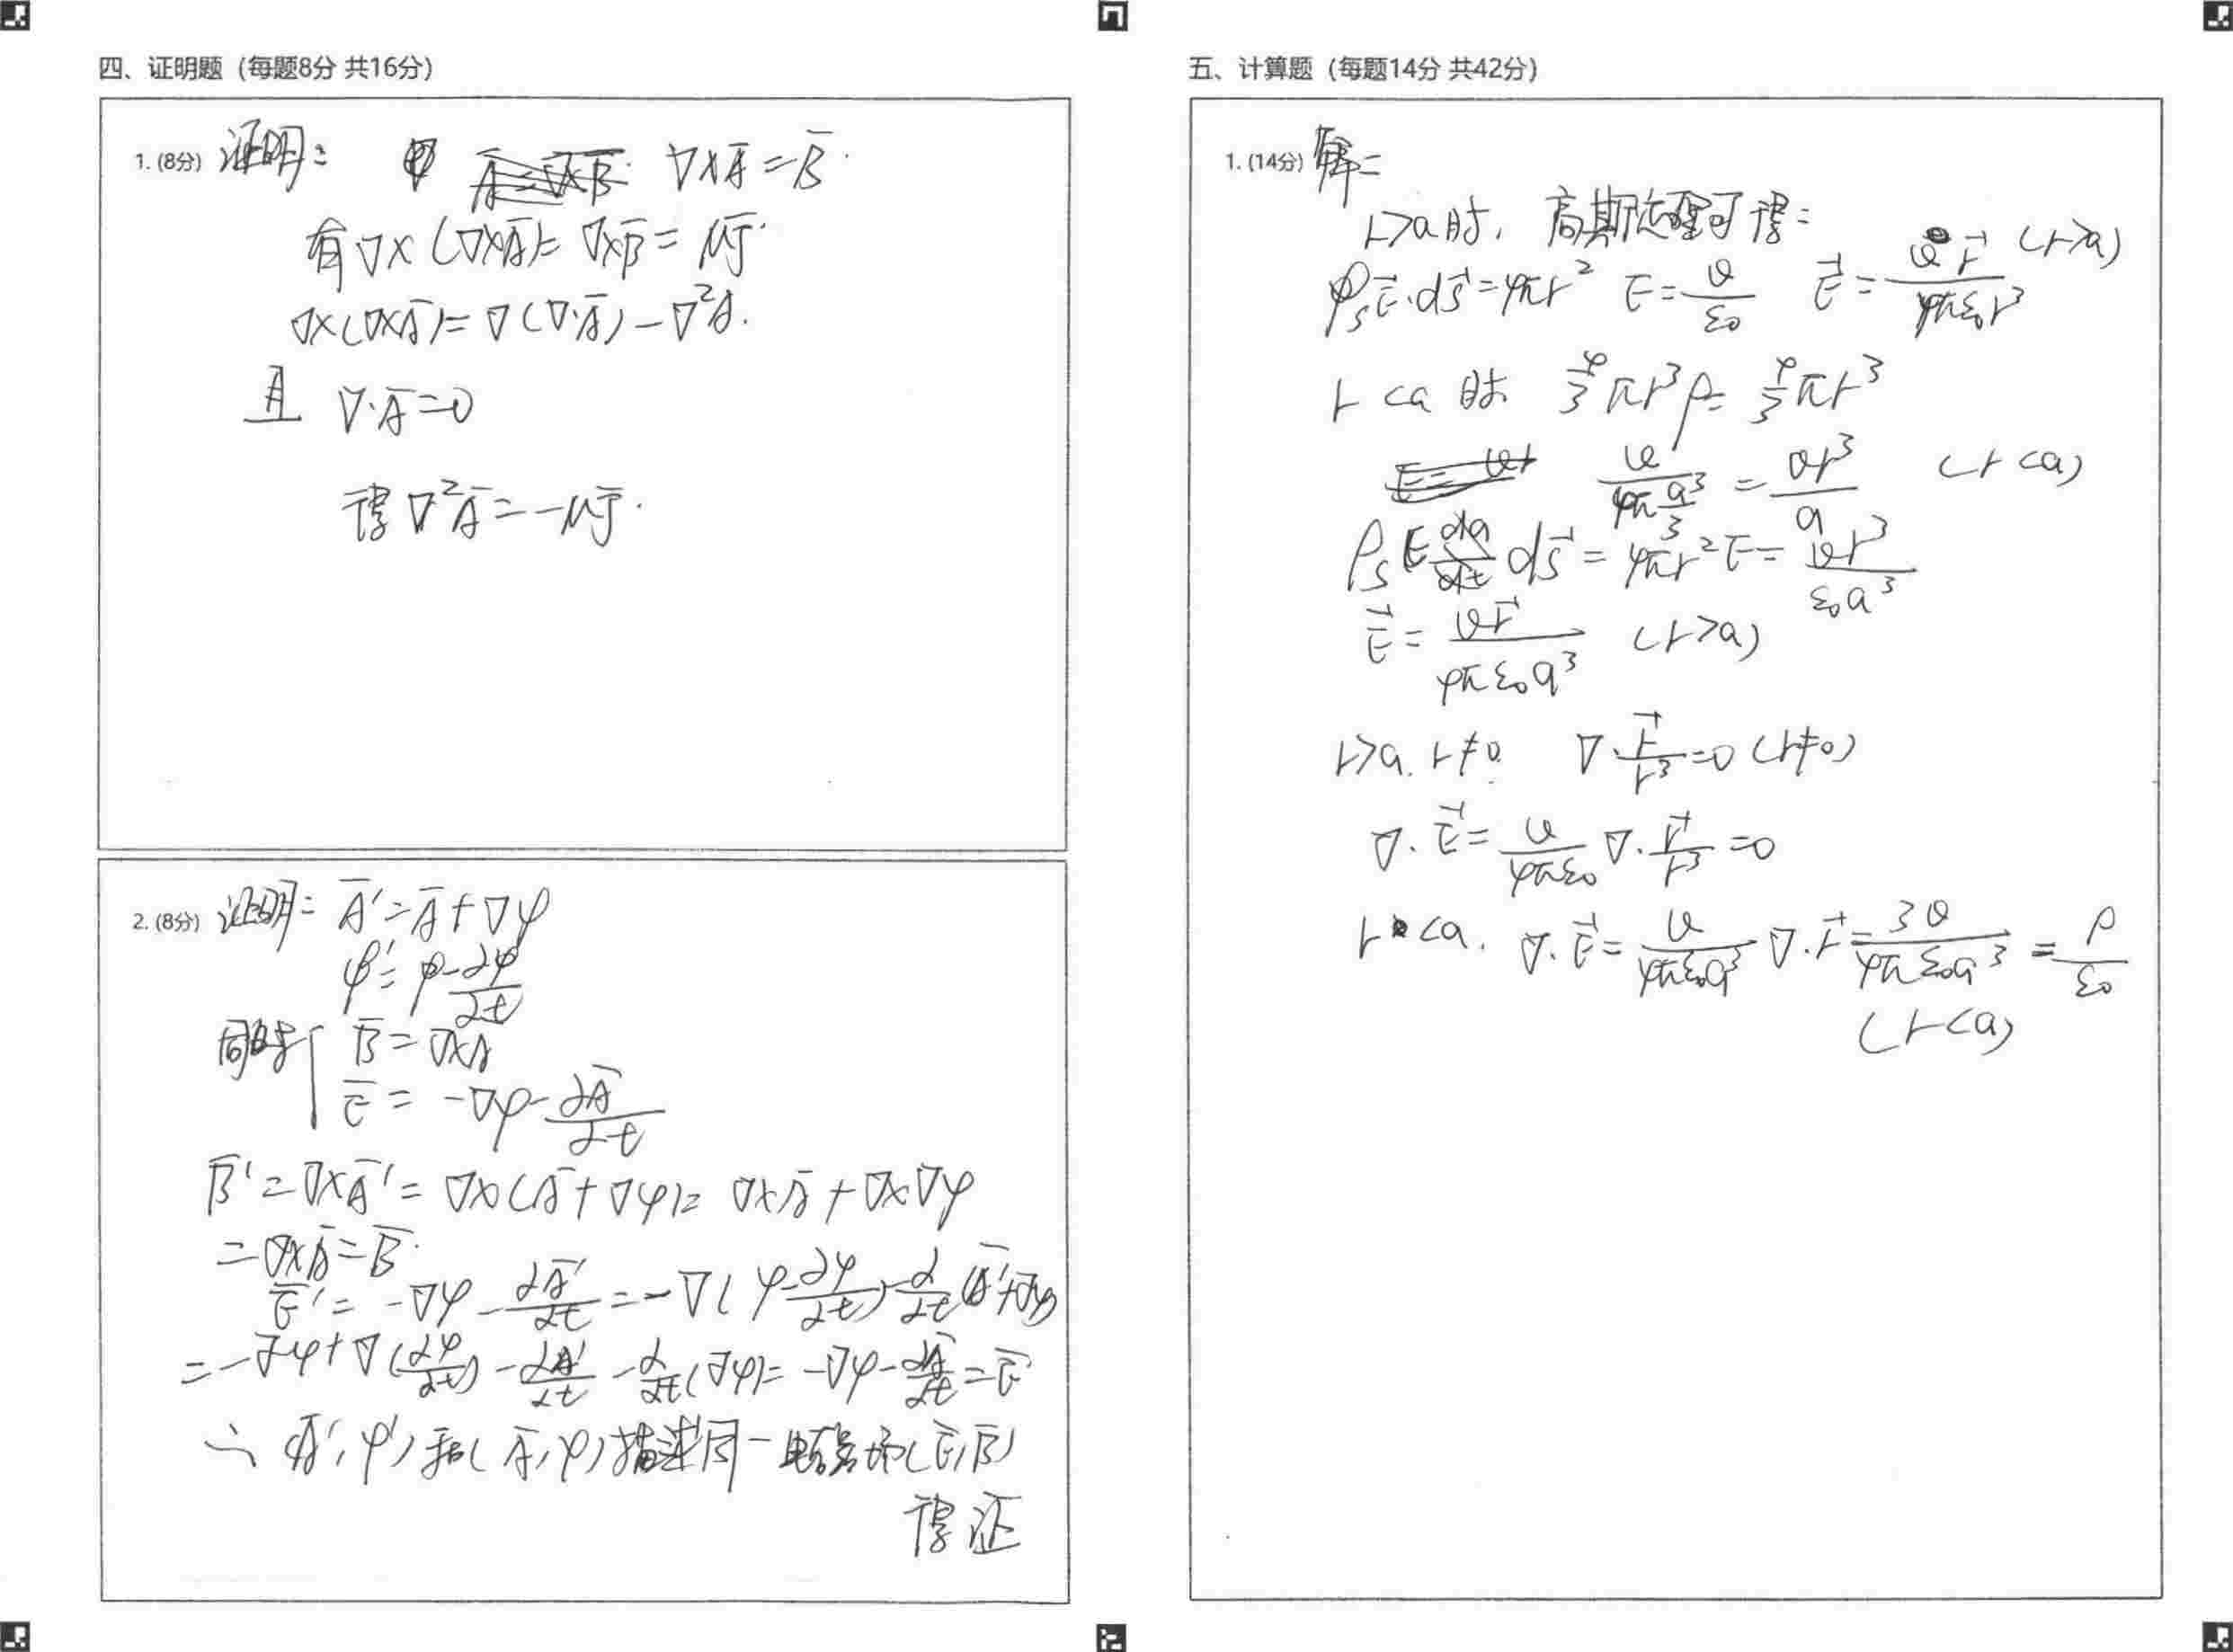 四、证明题（每题8分 共16分）
1. (8分) 证明: ∇×A̅=B̅.
有∇×(∇×A̅)=∇×B̅=μJ̅.
∇×(∇×A̅)=∇(∇·A̅)-∇²A̅.
且 ∇·A̅=0
得∇²A̅=-μJ̅.
2. (8分) 证明: A̅'=A̅+∇ψ
φ'=φ-∂ψ/∂t
同时{ B̅=∇×A̅
E̅=-∇φ-∂A̅/∂t
B̅'=∇×A̅'=∇×(A̅+∇ψ)=∇×A̅+∇×∇ψ
=∇×A̅=B̅.
E̅'=-∇φ-∂A̅'/∂t=-∇(φ-∂ψ/∂t)-∂/∂t(A̅'+∇ψ)
=-∇φ+∇(∂ψ/∂t)-∂A̅'/∂t-∂/∂t(∇ψ)=-∇φ-∂A̅/∂t=E̅
∴(A̅',φ')和(A̅,φ)描述同一电磁场(E̅,B̅)
得证
五、计算题（每题14分 共42分）
1. (14分) 解:
r>a时, 高斯定理可得:
∮s E⃗·dS⃗=4πr² E=Q/ε₀ E⃗=Qr⃗/4πε₀r³ (r>a)
r<a 时 4/3πr³ρ=4/3πr³
Q/(4πa³/3)=Qr³/a (r<a)
dS⃗=4πr²E=Qr³/ε₀a³
E⃗=Qr⃗/4πε₀a³ (r>a)
r>a. r≠0. ∇·r⃗/r³=0 (r≠0)
∇·E⃗=Q/4πε₀ ∇·r⃗/r³=0
r<a. ∇·E⃗=Q/4πε₀a³ ∇·r⃗=3Q/4πε₀a³=ρ/ε₀
(r<a)